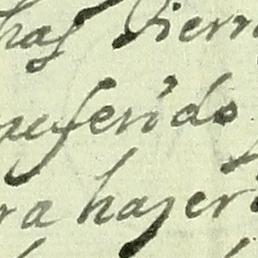 has Tierr
referido
ra hazer